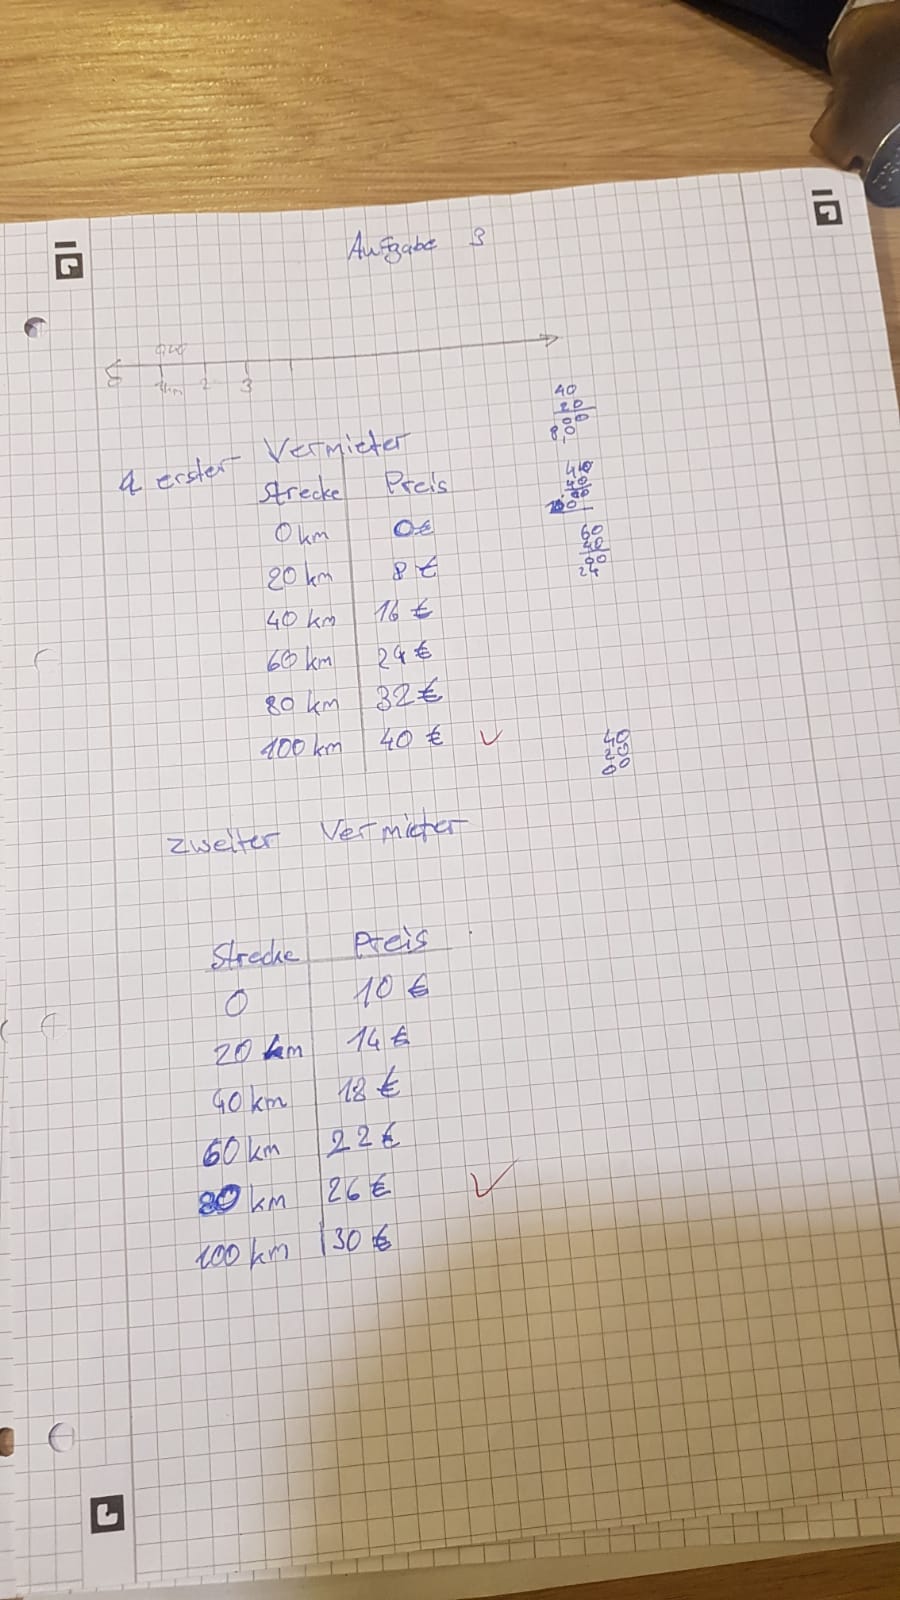 Aufgabe 3
2 3
40
20
00
8,0
erster Vermieter
Strecke Preis
0 km 0€
20 km 8 €
40 km 16 €
60 km 24 €
80 km 32 €
100 km 40 €
60
40
00
24
40
20
00
zweiter Vermieter
Strecke Preis
0 10 €
20 km 14 €
40 km 18 €
60 km 22 €
80 km 26 €
100 km 30 €